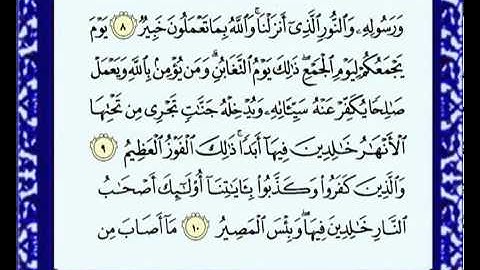 وَرَسُولِهِۦ وَٱلنُّورِ ٱلَّذِىٓ أَنزَلْنَا ۚ وَٱللَّهُ بِمَا تَعْمَلُونَ خَبِيرٌ ٨ يَوْمَ
يَجْمَعُكُمْ لِيَوْمِ ٱلْجَمْعِ ۖ ذَٰلِكَ يَوْمُ ٱلتَّغَابُنِ ۗ وَمَن يُؤْمِنۢ بِٱللَّهِ وَيَعْمَلْ
صَٰلِحًا يُكَفِّرْ عَنْهُ سَيِّـَٔاتِهِۦ وَيُدْخِلْهُ جَنَّٰتٍ تَجْرِى مِن تَحْتِهَا
ٱلْأَنْهَٰرُ خَٰلِدِينَ فِيهَآ أَبَدًا ۚ ذَٰلِكَ ٱلْفَوْزُ ٱلْعَظِيمُ ٩
وَٱلَّذِينَ كَفَرُوا۟ وَكَذَّبُوا۟ بِـَٔايَٰتِنَآ أُو۟لَٰٓئِكَ أَصْحَٰبُ
ٱلنَّارِ خَٰلِدِينَ فِيهَا ۖ وَبِئْسَ ٱلْمَصِيرُ ١٠ مَآ أَصَابَ مِن